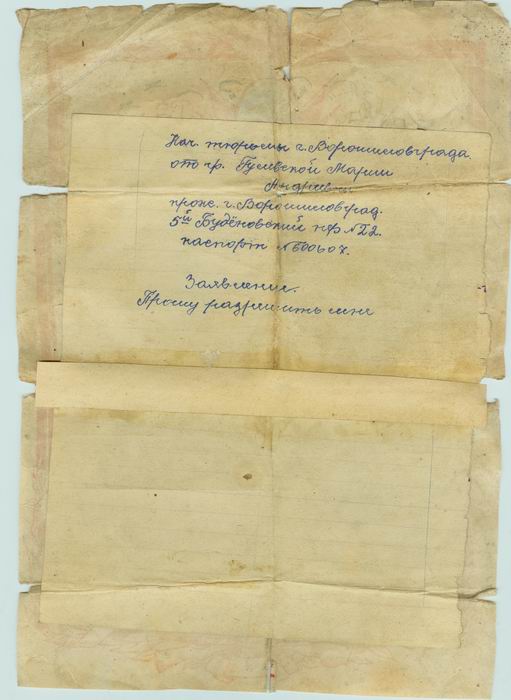 Нач. тюрьмы г. Ворошиловграда.
от гр. Гулевской Марии
Андреевны
прож. г. Ворошиловград.
5й Будёновский пр №22.
паспорт №600607.
Заявление.
Прошу разрешить мне